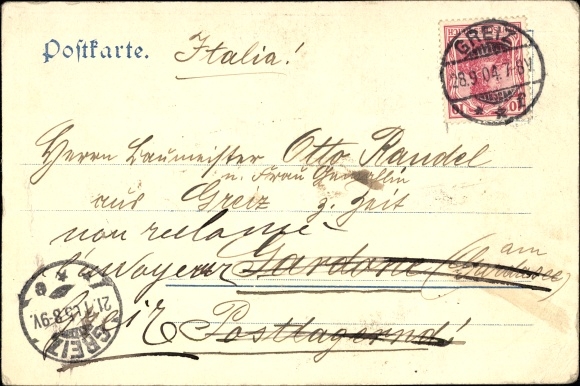 Postkarte.
Italia!
GREIZ
28.9.04.7-8V.
Herrn Baumeister Otto Randel
u. Frau Gemahlin
aus Greiz z. Zeit
non reclamé
Gardone (am Gardasee)
Greiz Postlagernd!
GREIZ